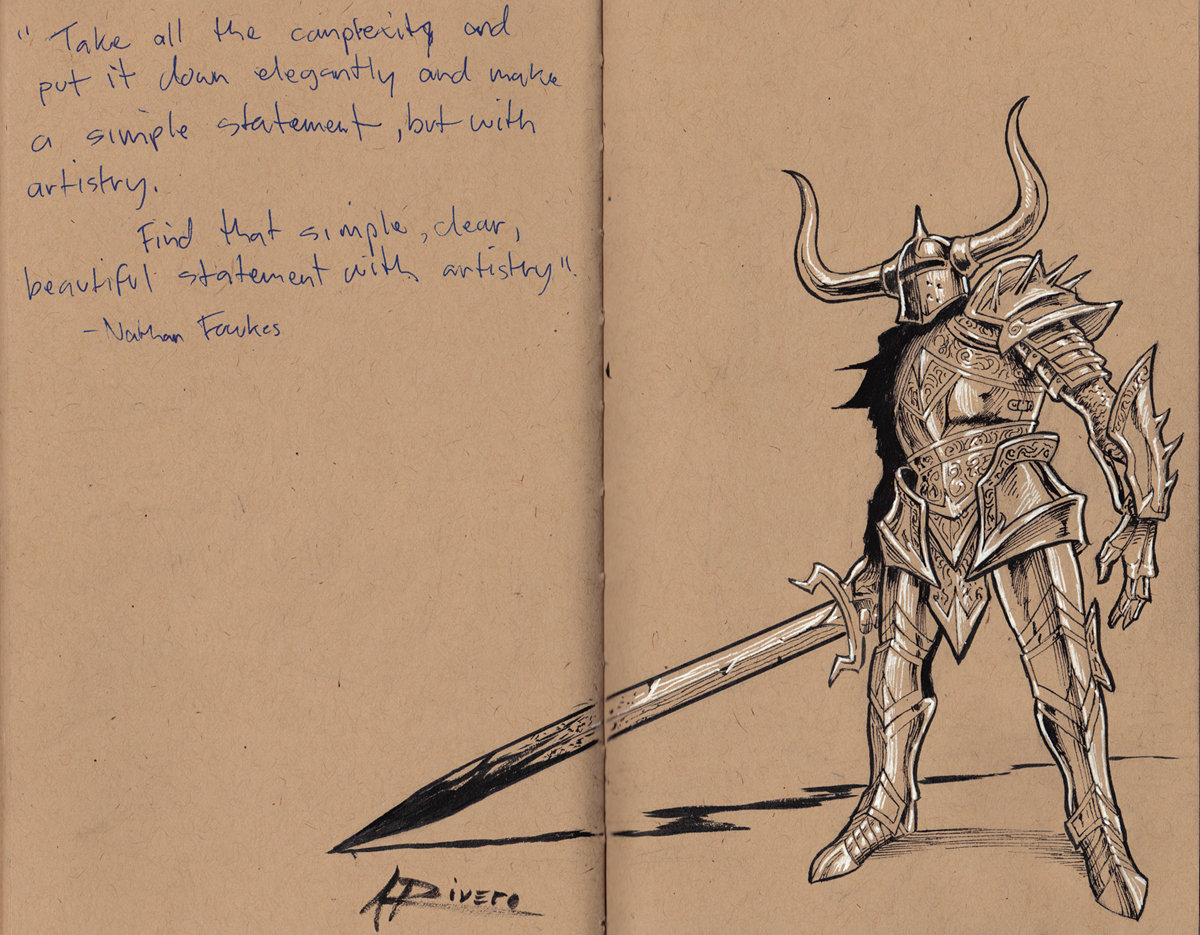 " Take all the complexity and
put it down elegantly and make
a simple statement, but with
artistry.
Find that simple, clear,
beautiful statement with artistry".
- Nathan Fowkes
ARivero